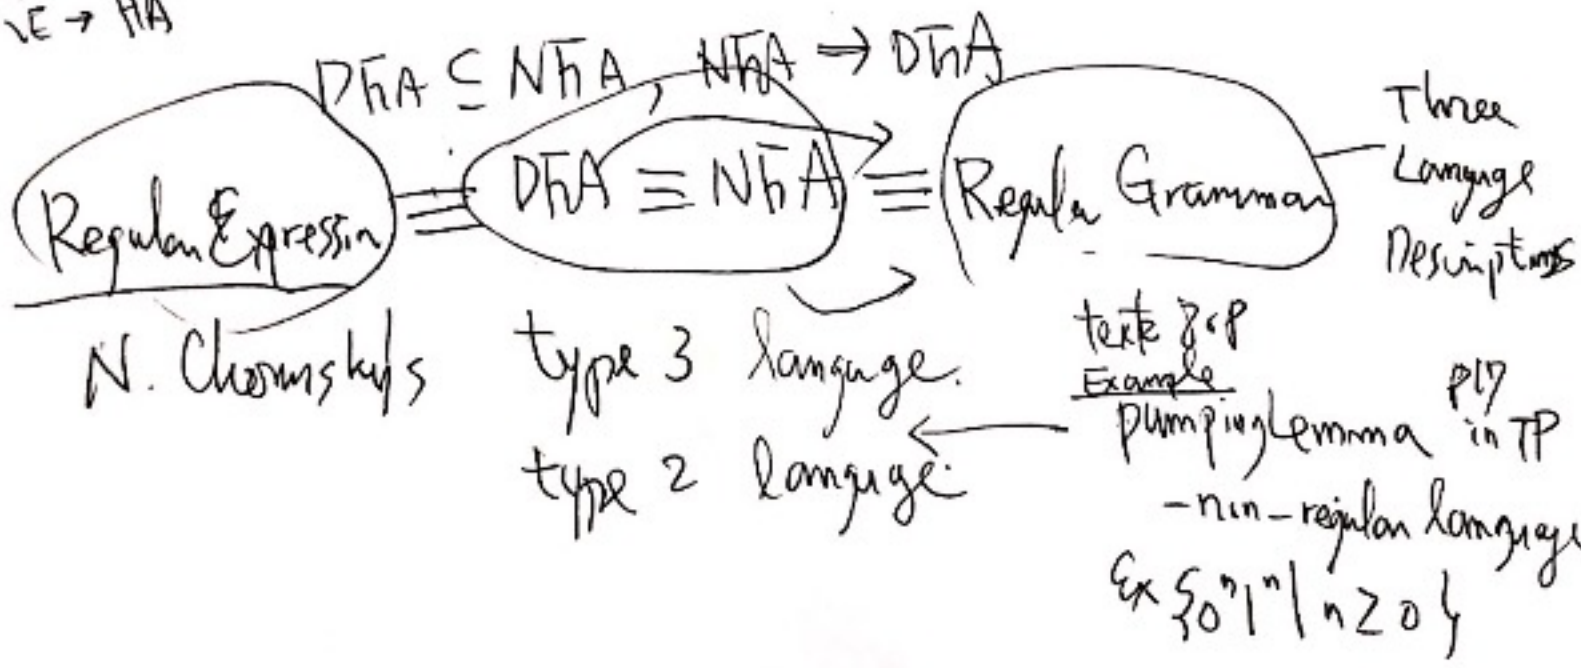 RE → FA
DFA ⊆ NFA, NFA → DFA
Regular Expression ≡ DFA ≡ NFA ≡ Regular Grammar
Three
Language
Descriptions
N. Chomsky's type 3 language.
type 2 language.
Example
pumping Lemma P17
in TP
- non-regular language
Ex {0ⁿ1ⁿ | n ≥ 0}